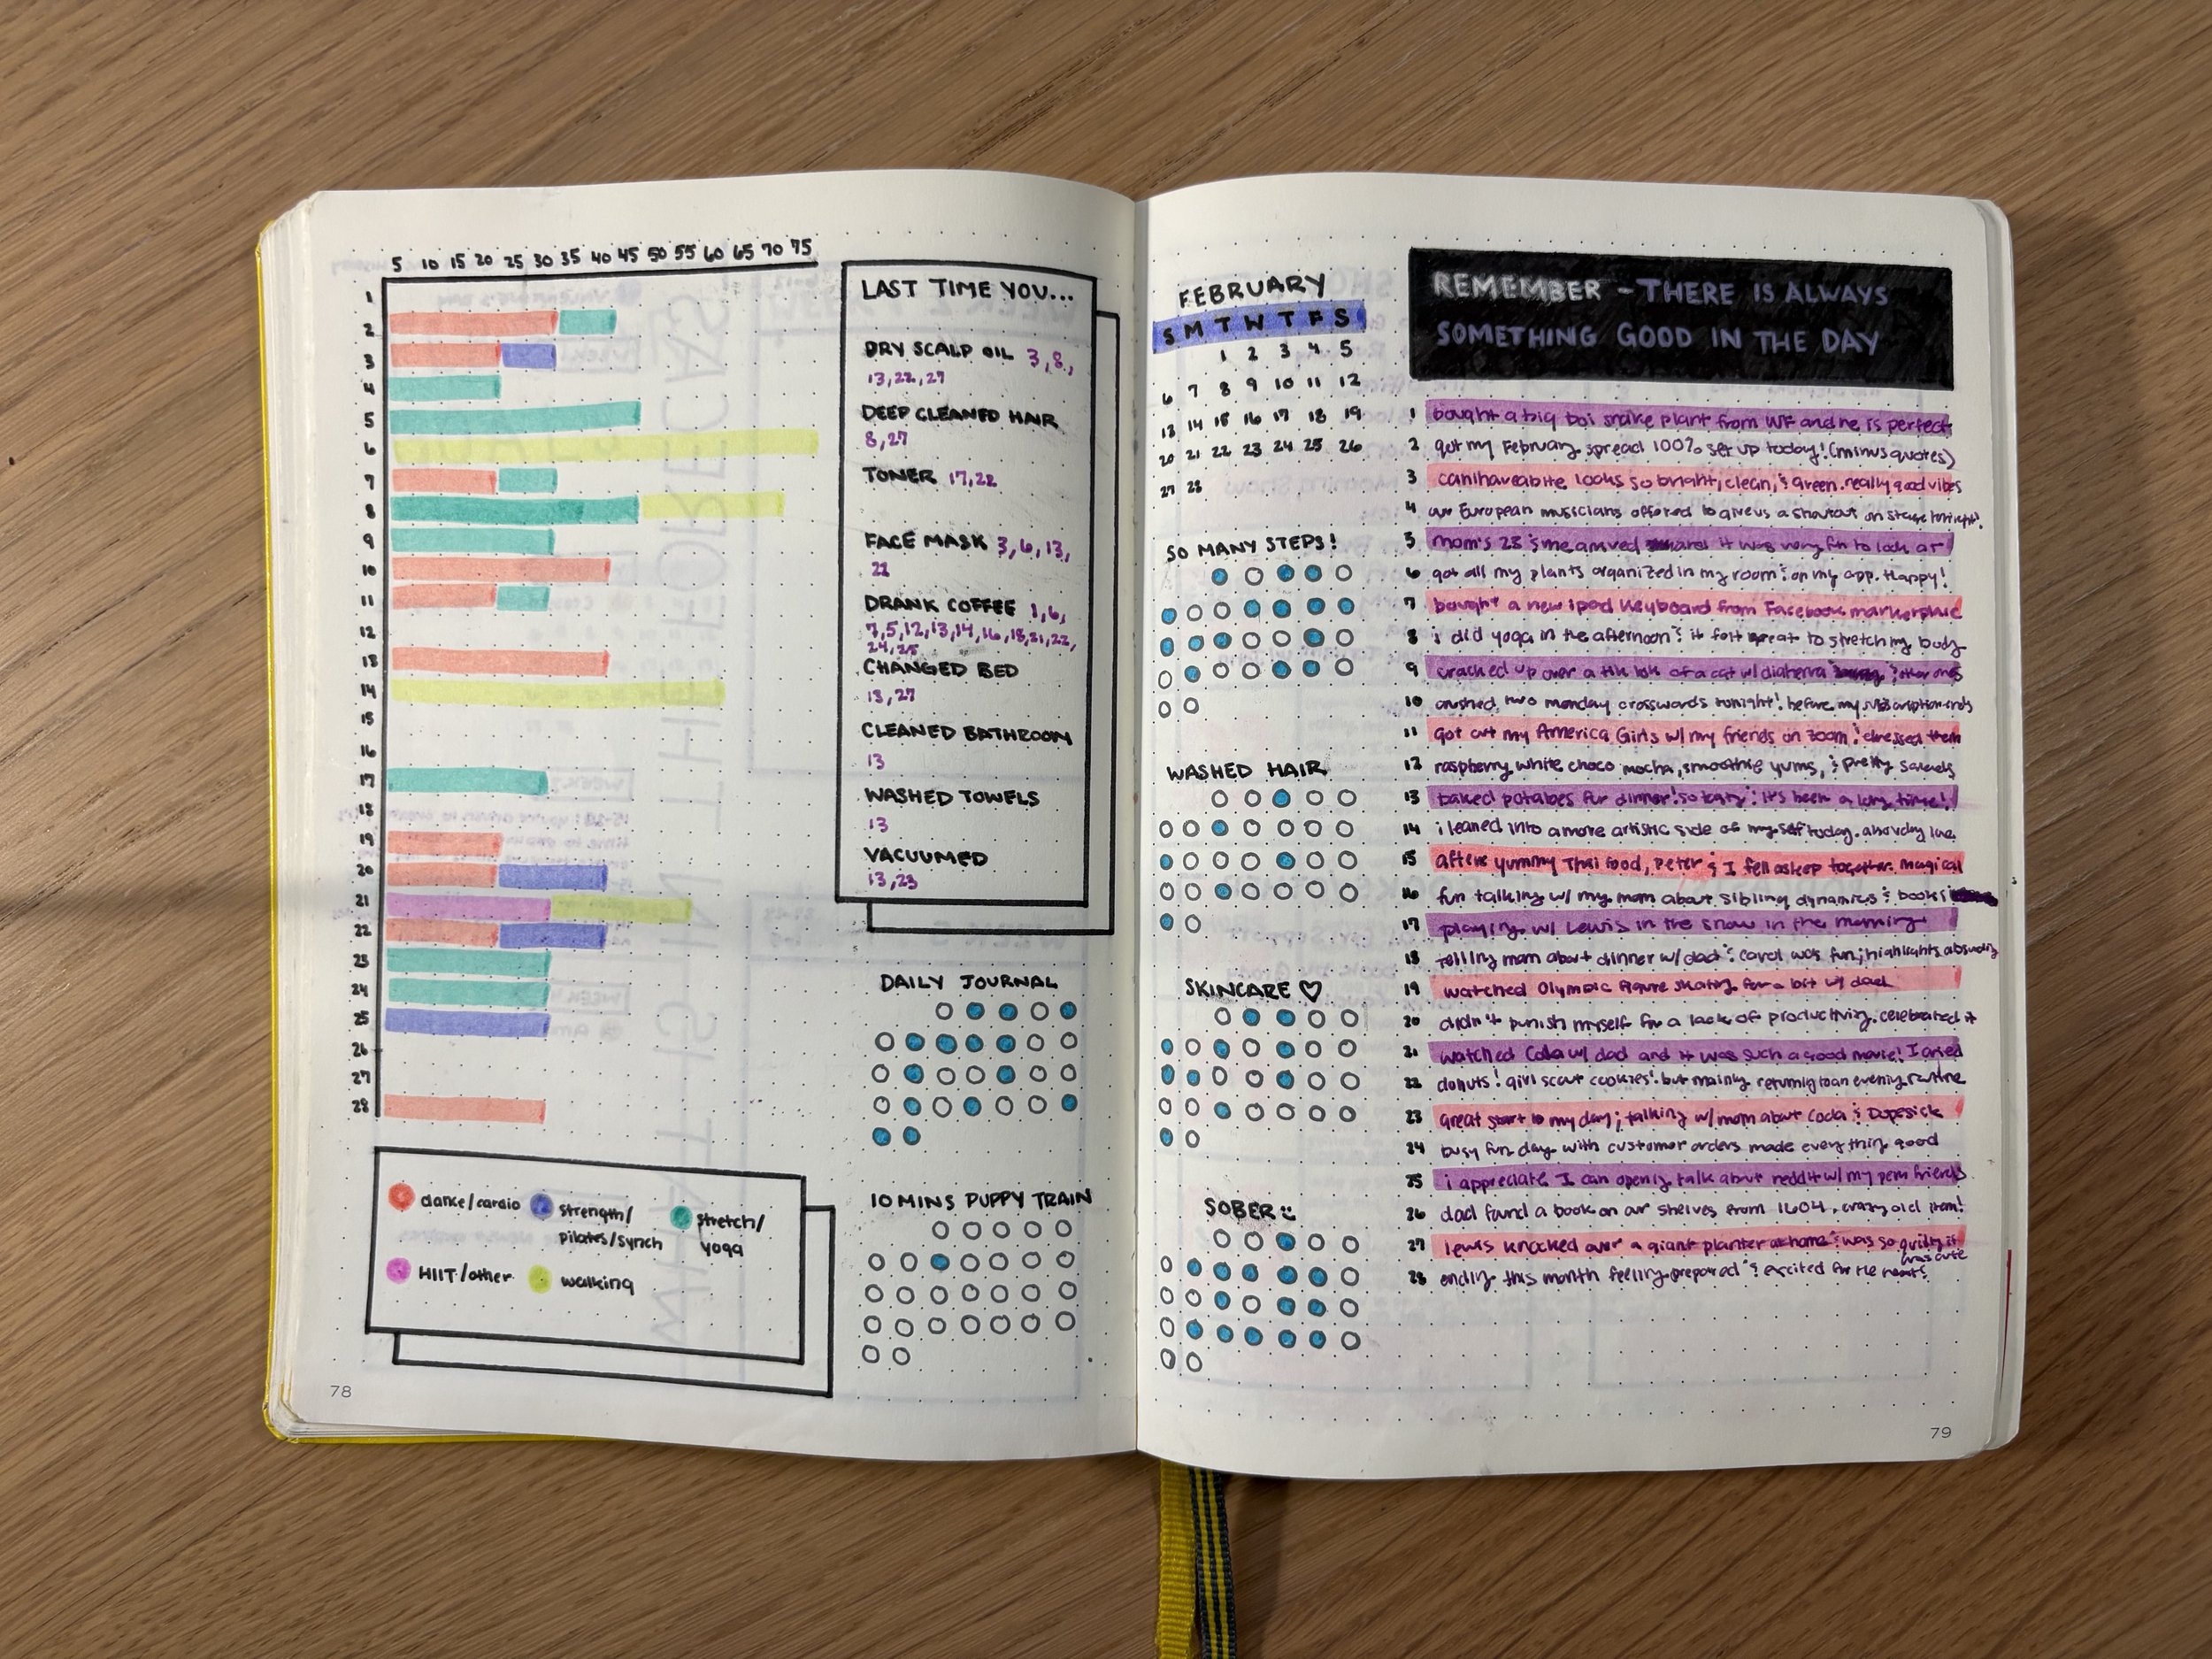 5 10 15 20 25 30 35 40 45 50 55 60 65 70 75
1
2
3
4
5
6
7
8
9
10
11
12
13
14
15
16
17
18
19
20
21
22
23
24
25
26
27
28
dance/cardio
strength/
pilates/synch
stretch/
yoga
HIIT/other
walking
78
LAST TIME YOU...
DRY SCALP OIL 3,8,
13,22,27
DEEP CLEANED HAIR
8,27
TONER 17,22
FACE MASK 3,6,13,
22
DRANK COFFEE 1,6,
7,5,12,13,14,16,18,21,22,
24,25
CHANGED BED
13,27
CLEANED BATHROOM
13
WASHED TOWELS
13
VACUUMED
13,23
DAILY JOURNAL
10 MINS PUPPY TRAIN
FEBRUARY
S M T W T F S
1 2 3 4 5
6 7 8 9 10 11 12
13 14 15 16 17 18 19
20 21 22 23 24 25 26
27 28
SO MANY STEPS!
WASHED HAIR
SKINCARE ♡
SOBER
REMEMBER - THERE IS ALWAYS
SOMETHING GOOD IN THE DAY
1 bought a big boi snake plant from WF and he is perfect
2 got my February spread 100% set up today! (minus quotes)
3 canihaveabite looks so bright, clean, & green. really good vibes
4 our European musicians offered to give us a shoutout on stage tonight!
5 mom's 23 & me arrived it was very fun to look at
6 got all my plants organized in my room & on my app. Happy!
7 bought a new ipad Keyboard from Facebook marketplace
8 i did yoga in the afternoon & it felt great to stretch my body
9 cracked up over a tik tok of a cat w/ & other ones
10 crushed two monday crosswords tonight! before my subscription ends
11 got out my America Girls w/ my friends on zoom! dressed them
12 raspberry white choco mocha, smoothie yums, & pretty
13 baked potatoes for dinner! so tasty & it's been a long time!
14 i leaned into a more artistic side of myself today.
15 after yummy Thai food, Peter & I fell asleep together. magical
16 fun talking w/ my mom about sibling dynamics & books
17 playing w/ Lewis in the snow in the morning
18 telling mom about dinner w/ dad & carol was fun; highlights
19 watched Olympic figure skating for a bit w/ dad
20 didn't punish myself for a lack of productivity. celebrated it
21 watched Coda w/ dad and it was such a good movie! I cried
22 donuts! girl scout cookies! but mainly returning to an evening routine
23 great start to my day; talking w/ mom about Coda & Dopesick
24 busy fun day with customer orders made everything good
25 i appreciate I can openly talk about reddit w/ my friends
26 dad found a book on our shelves from 1604. crazy old item!
27 lewis knocked over a giant planter at home & was so guilty it
was cute
28 ending this month feeling prepared & excited for the next!
79